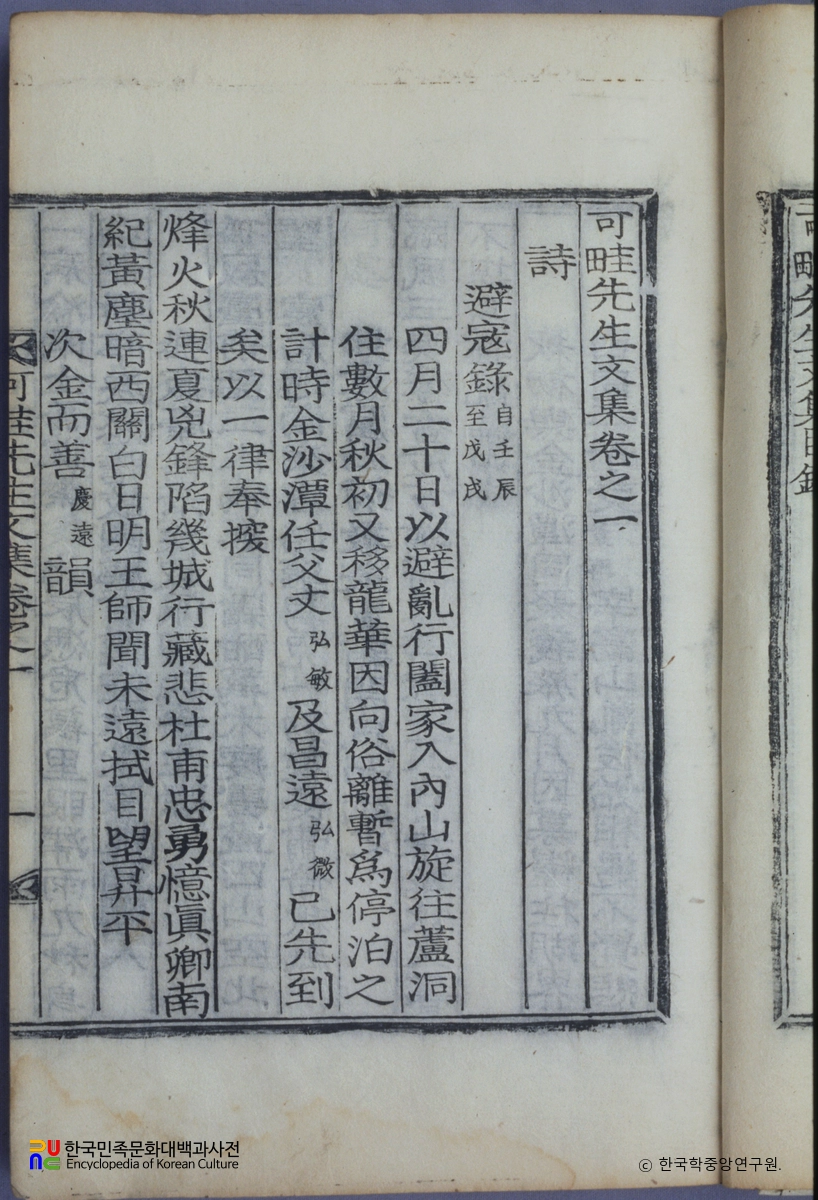 可畦先生文集卷之一
詩
避寇錄 自壬辰至戊戌
四月二十日以避亂行闔家入內山旋往蘆洞
住數月秋初又移龍華因向俗離暫爲停泊之
計時金沙潭任父丈 弘敏 及昌遠 弘微 已先到
矣以一律奉投
烽火秋連夏兇鋒陷幾城行藏悲杜甫忠勇憶眞卿南
紀黃塵暗西關白日明王師聞未遠拭目望昇平
次金而善 慶遠 韻
可畦先生文集卷之一
一
한국민족문화대백과사전
Encyclopedia of Korean Culture
© 한국학중앙연구원.